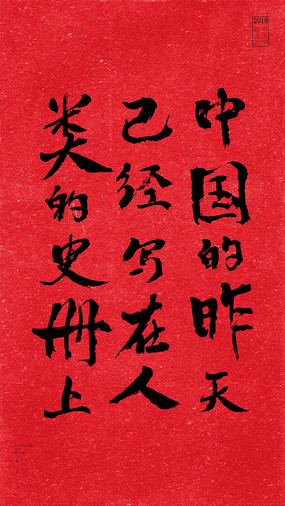 中国的昨天
已经写在人
类的史册上
2018